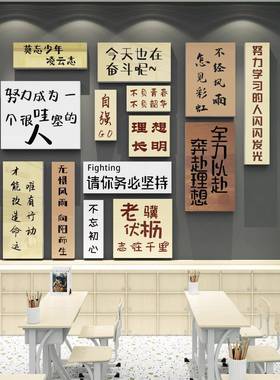 莫忘少年
凌云志
今天也在
奋斗呢~
不经风雨
怎见彩虹
努力学习的人闪闪发光
努力成为一
个很哇塞的
人
自强
GO
不负青春
不负韶华
理想
长明
全力以赴
奔赴理想
唯有行动
才能改造命运
无惧风雨
向阳而生
Fighting
请你务必坚持
不忘初心
老骥
伏枥
志在千里